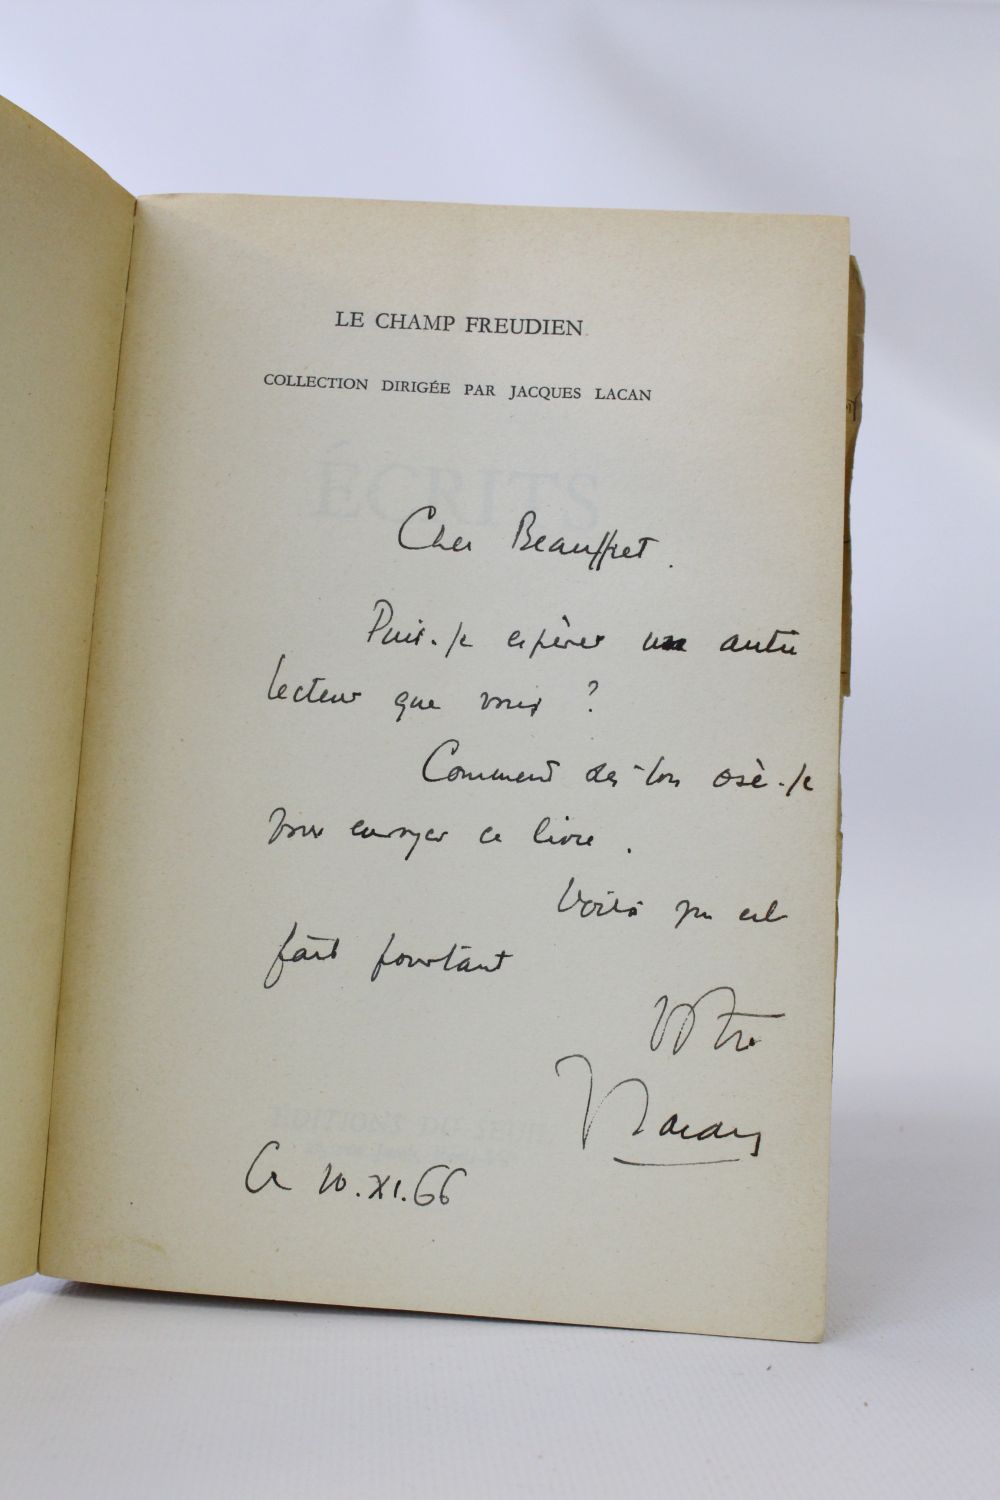 LE CHAMP FREUDIEN
COLLECTION DIRIGÉE PAR JACQUES LACAN
ÉCRITS
Cher Beauffret.
Puis-je espérer un autre
lecteur que vous ?
Comment dès lors osè-je
vous envoyer ce livre.
Voilà qui est
fait pourtant
Vôtre
J Lacan
ÉDITIONS DU SEUIL
Ce 10.XI.66